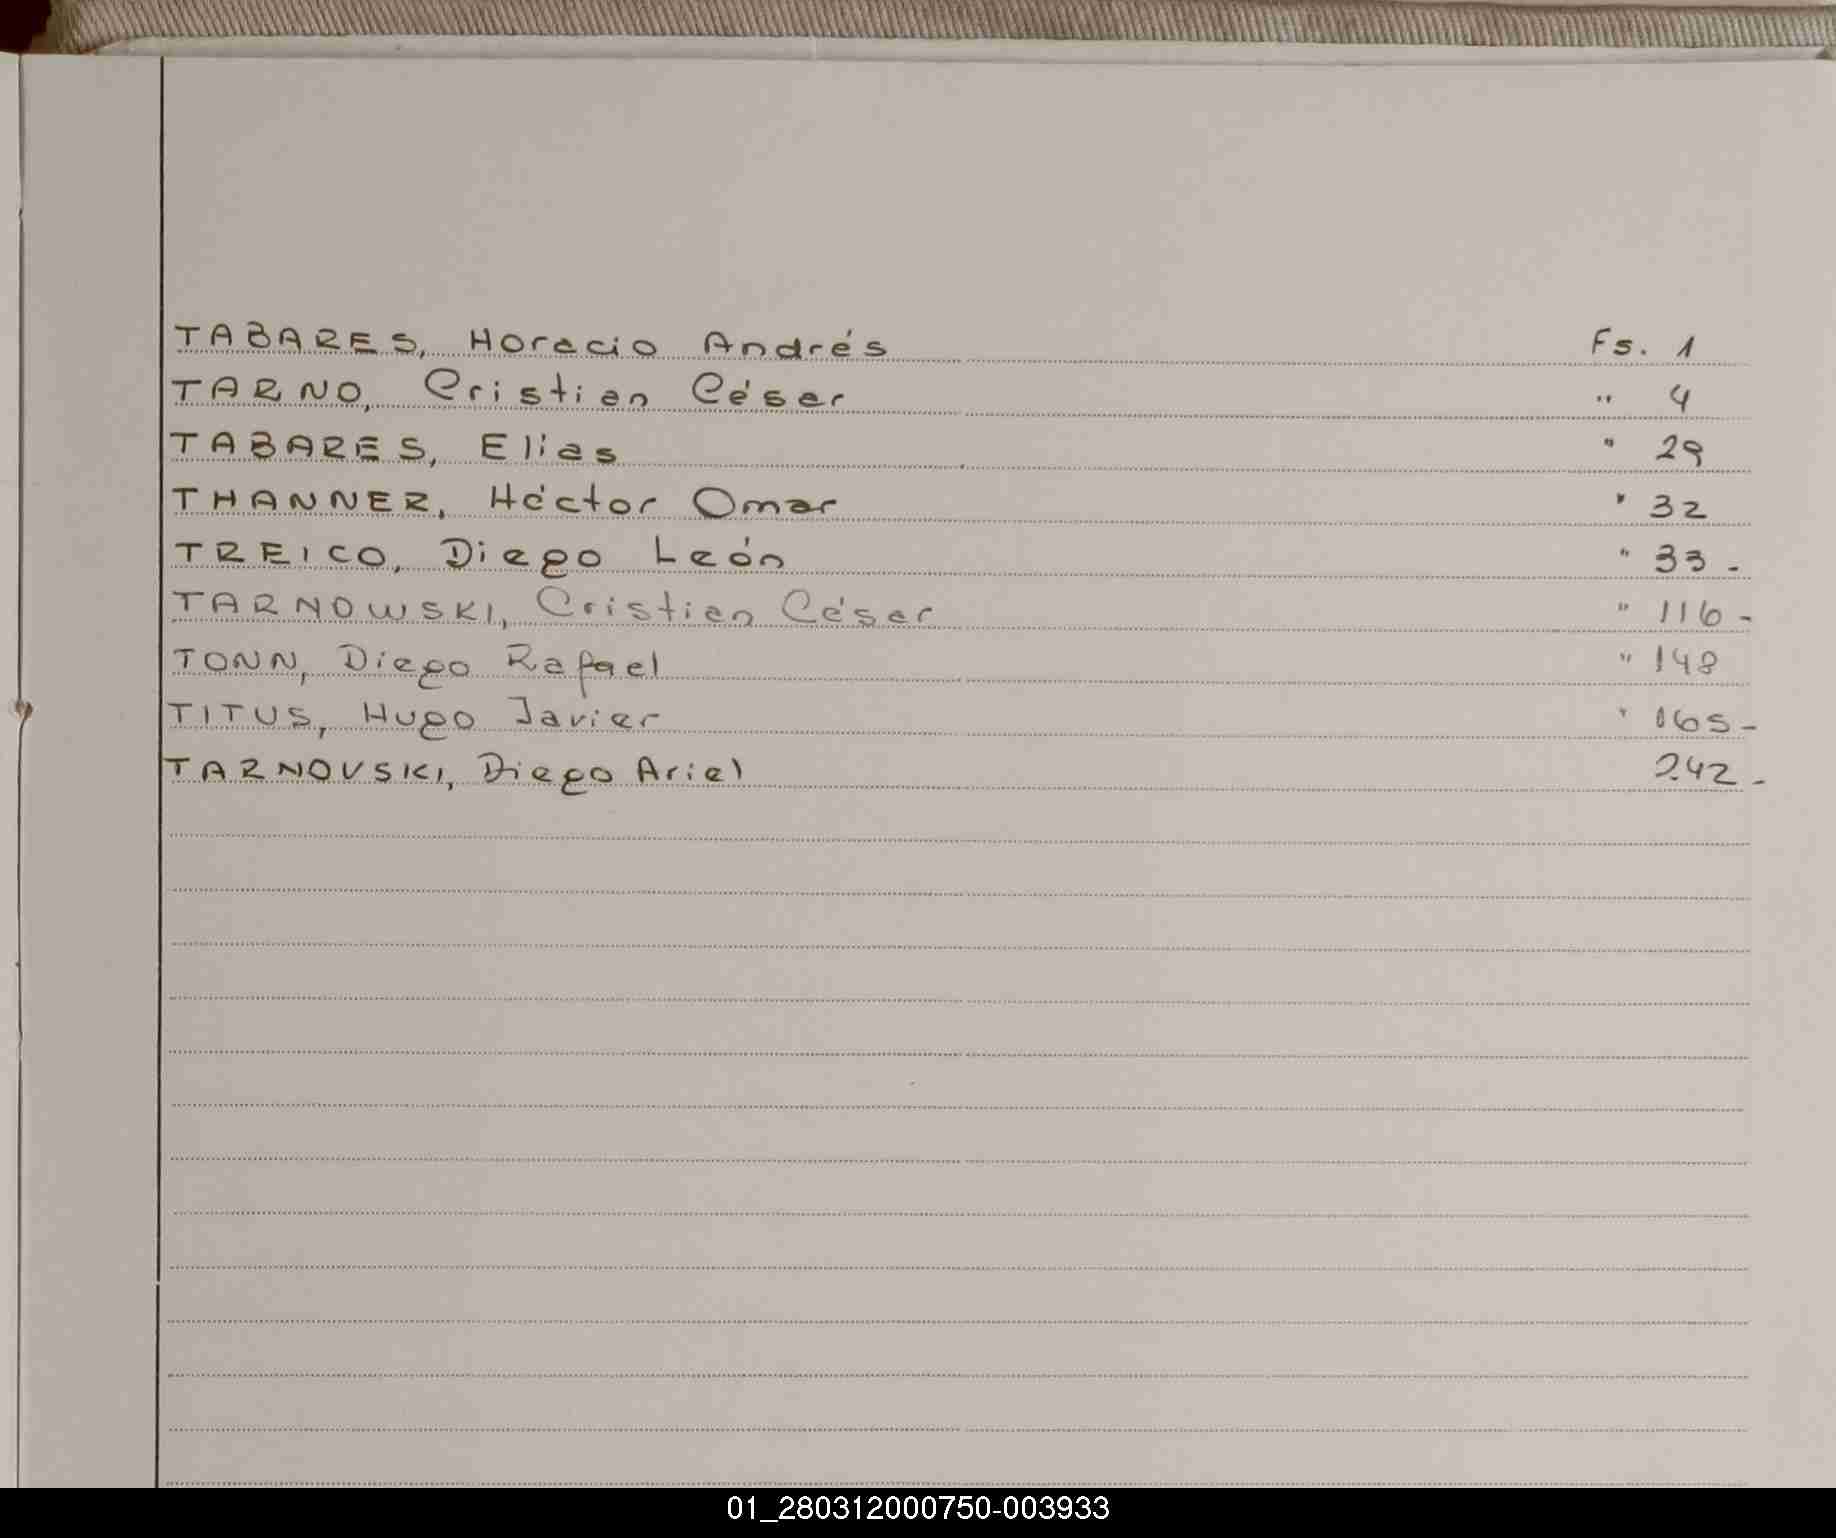 TABARES, Horacio Andrés Fs. 1
TARNO, Cristian César " 4
TABARES, Elias " 29
THANNER, Héctor Omar " 32
TREICO, Diego León " 33 -
TARNOWSKI, Cristian César " 116 -
TONN, Diego Rafael " 148
TITUS, Hugo Javier " 165 -
TARNOVSKI, Diego Ariel 242 -
01_280312000750-003933